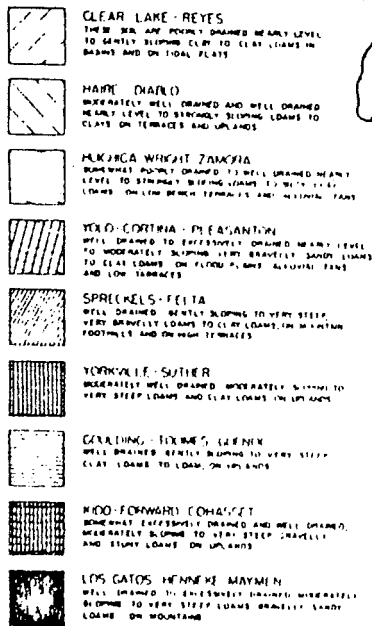 CLEAR LAKE - REYES
THESE SOIL ARE POORLY DRAINED NEARLY LEVEL
TO GENTLY SLOPING CLAY TO CLAY LOAMS IN
BASINS AND ON TIDAL FLATS
HAIRE DIABLO
MODERATELY WELL DRAINED AND WELL DRAINED
NEARLY LEVEL TO STRONGLY SLOPING LOAMS TO
CLAYS ON TERRACES AND UPLANDS
HUICHICA WRIGHT ZAMORA
SOMEWHAT POORLY DRAINED TO WELL DRAINED NEARLY
LEVEL TO STRONGLY SLOPING LOAMS TO SILTY CLAY
LOAMS ON LOW BENCH TERRACES AND ALLUVIAL FANS
YOLO - CORTINA - PLEASANTON
WELL DRAINED TO EXCESSIVELY DRAINED NEARLY LEVEL
TO MODERATELY SLOPING VERY GRAVELLY SANDY LOAMS
TO CLAY LOAMS ON FLOOD PLAINS ALLUVIAL FANS
AND LOW TERRACES
SPRECKELS - FELTA
WELL DRAINED GENTLY SLOPING TO VERY STEEP,
VERY GRAVELLY LOAMS TO CLAY LOAMS, ON MOUNTAIN
FOOTHILLS AND ON HIGH TERRACES
YORKVILLE - SUTHER
MODERATELY WELL DRAINED MODERATELY SLOPING TO
VERY STEEP LOAMS AND CLAY LOAMS ON UPLANDS
GOULDING - TOOMES GUENOC
WELL DRAINED GENTLY SLOPING TO VERY STEEP
CLAY LOAMS TO LOAM, ON UPLANDS
KIDD - FORWARD COHASSET
SOMEWHAT EXCESSIVELY DRAINED AND WELL DRAINED,
MODERATELY SLOPING TO VERY STEEP GRAVELLY
AND STONY LOAMS ON UPLANDS
LOS GATOS HENNEKE MAYMEN
WELL DRAINED TO EXCESSIVELY DRAINED MODERATELY
SLOPING TO VERY STEEP LOAMS GRAVELLY SANDY
LOAMS ON MOUNTAINS